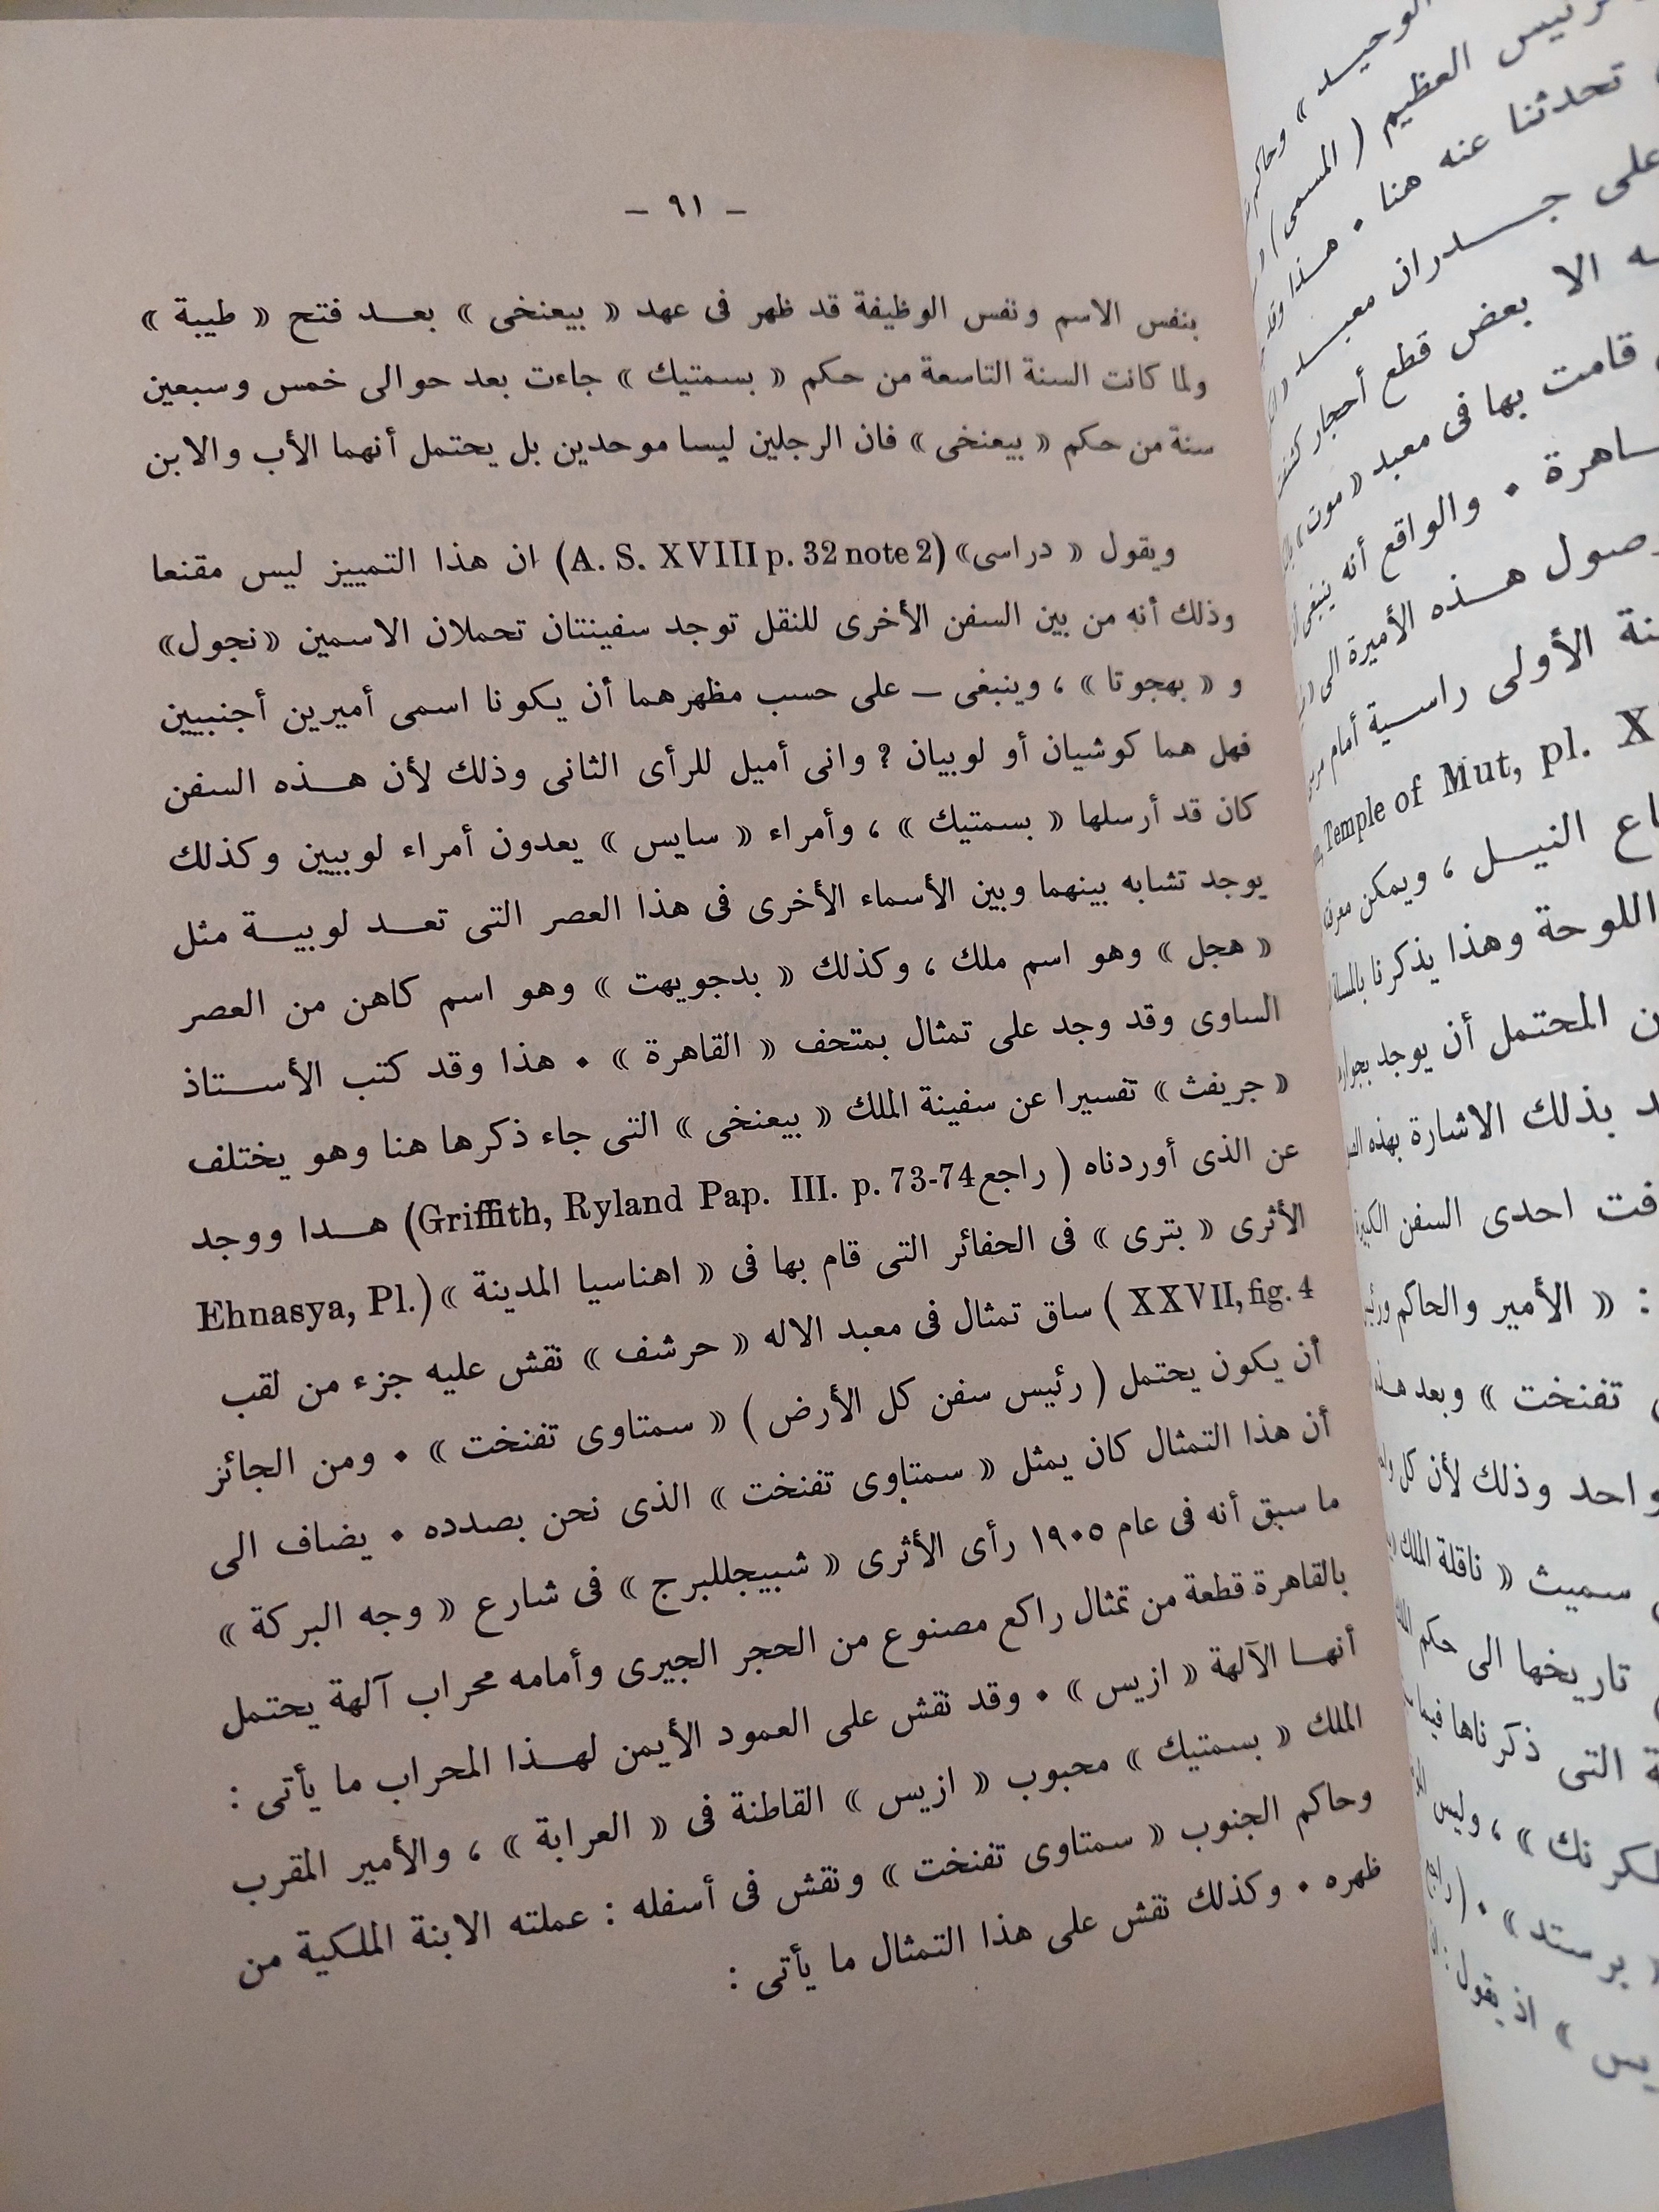 — ٩١ —
بنفس الاسم ونفس الوظيفة قد ظهر فى عهد « بيعنخى » بعد فتح « طيبة »
ولما كانت السنة التاسعة من حكم « بسمتيك » جاءت بعد حوالى خمس وسبعين
سنة من حكم « بيعنخى » فان الرجلين ليسا موحدين بل يحتمل أنهما الأب والابن
ويقول « دراسى» (A. S. XVIII p. 32 note 2) ان هذا التمييز ليس مقنعا
وذلك أنه من بين السفن الأخرى للنقل توجد سفينتان تحملان الاسمين «نجول»
و « بهجوتا » ، وينبغى — على حسب مظهرهما أن يكونا اسمى أميرين أجنبيين
فهل هما كوشيان أو لوبيان ? وانى أميل للرأى الثانى وذلك لأن هذه السفن
كان قد أرسلها « بسمتيك » ، وأمراء « سايس » يعدون أمراء لوبيين وكذلك
يوجد تشابه بينهما وبين الأسماء الأخرى فى هذا العصر التى تعد لوبية مثل
« هجل » وهو اسم ملك ، وكذلك « بدجويهت » وهو اسم كاهن من العصر
الساوى وقد وجد على تمثال بمتحف « القاهرة » . هذا وقد كتب الأستاذ
« جريفث » تفسيرا عن سفينة الملك « بيعنخى » التى جاء ذكرها هنا وهو يختلف
عن الذى أوردناه ( راجع Griffith, Ryland Pap. III. p. 73-74) هدا ووجد
الأثرى « بترى » فى الحفائر التى قام بها فى « اهناسيا المدينة » (Ehnasya, Pl.
XXVII, fig. 4 ) ساق تمثال فى معبد الاله « حرشف » نقش عليه جزء من لقب
أن يكون يحتمل ( رئيس سفن كل الأرض ) « سمتاوى تفنخت » . ومن الجائز
أن هذا التمثال كان يمثل « سمتاوى تفنخت » الذى نحن بصدده . يضاف الى
ما سبق أنه فى عام ١٩٠٥ رأى الأثرى « شبيجللبرج » فى شارع « وجه البركة »
بالقاهرة قطعة من تمثال راكع مصنوع من الحجر الجيرى وأمامه محراب آلهة يحتمل
أنها الآلهة « ازيس » . وقد نقش على العمود الأيمن لهذا المحراب ما يأتى :
الملك « بسمتيك » محبوب « ازيس » القاطنة فى « العرابة » ، والأمير المقرب
وحاكم الجنوب « سمتاوى تفنخت » ونقش فى أسفله : عملته الابنة الملكية من
ظهره . وكذلك نقش على هذا التمثال ما يأتى :
الوحيد » وحاكم
العظيم ( المسمى )
تحدثنا عنه هنا . هذا وقد
على جدران معبد
الا بعض قطع أحجار
قامت بها فى معبد « موت »
والواقع أنه ينبغى
هذه الأميرة الى
الأولى راسية أمام
Temple of Mut, pl.
النيل ، ويمكن
اللوحة وهذا يذكرنا
المحتمل أن يوجد
بذلك الاشارة بهذه
احدى السفن
: « الأمير والحاكم
تفنخت » وبعد
وذلك لأن كل
سميث « ناقلة الملك
تاريخها الى حكم
التى ذكرناها فيما
وليس
برستد » . ( راجع
» اذ يقول :